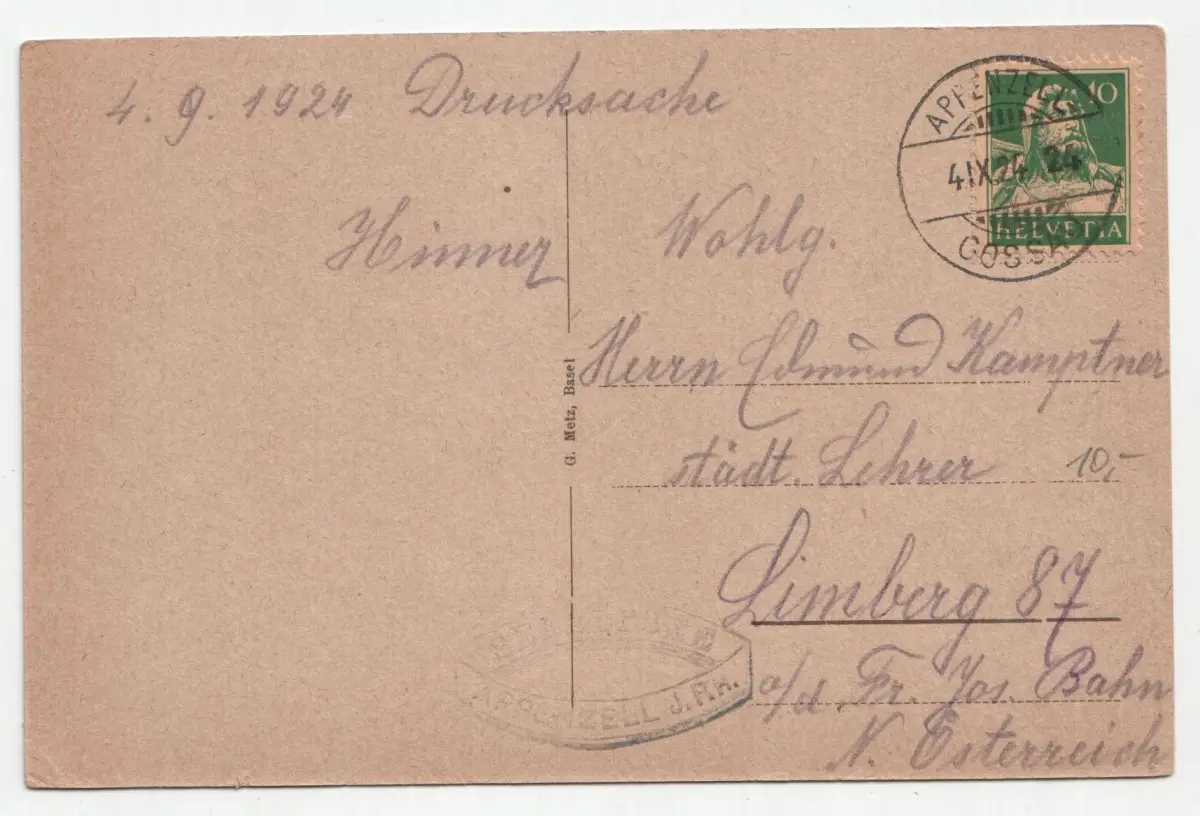 4. 9. 1924 Drucksache
Hinner
Wohlg.
Herrn Edmund Kamptner
städt. Lehrer
10,-
Limberg 87
a/d. Fr. Jos. Bahn
N. Österreich
G. Metz, Basel
APPENZELL
4.IX.24 24
GOSSA
10
HELVETIA
APPENZELL J.RH.